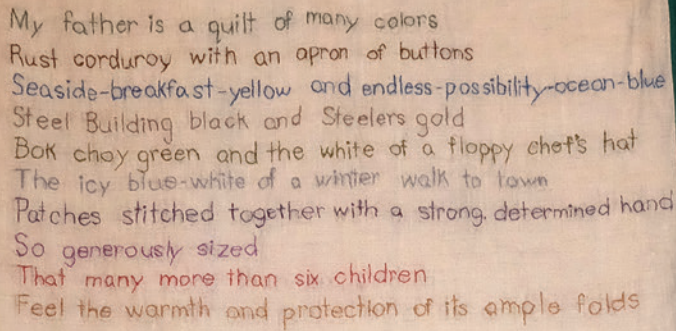 My father is a quilt of many colors
Rust corduroy with an apron of buttons
Seaside-breakfast-yellow and endless-possibility-ocean-blue
Steel Building black and Steelers gold
Bok choy green and the white of a floppy chef's hat
The icy blue-white of a winter walk to town
Patches stitched together with a strong, determined hand
So generously sized
That many more than six children
Feel the warmth and protection of its ample folds